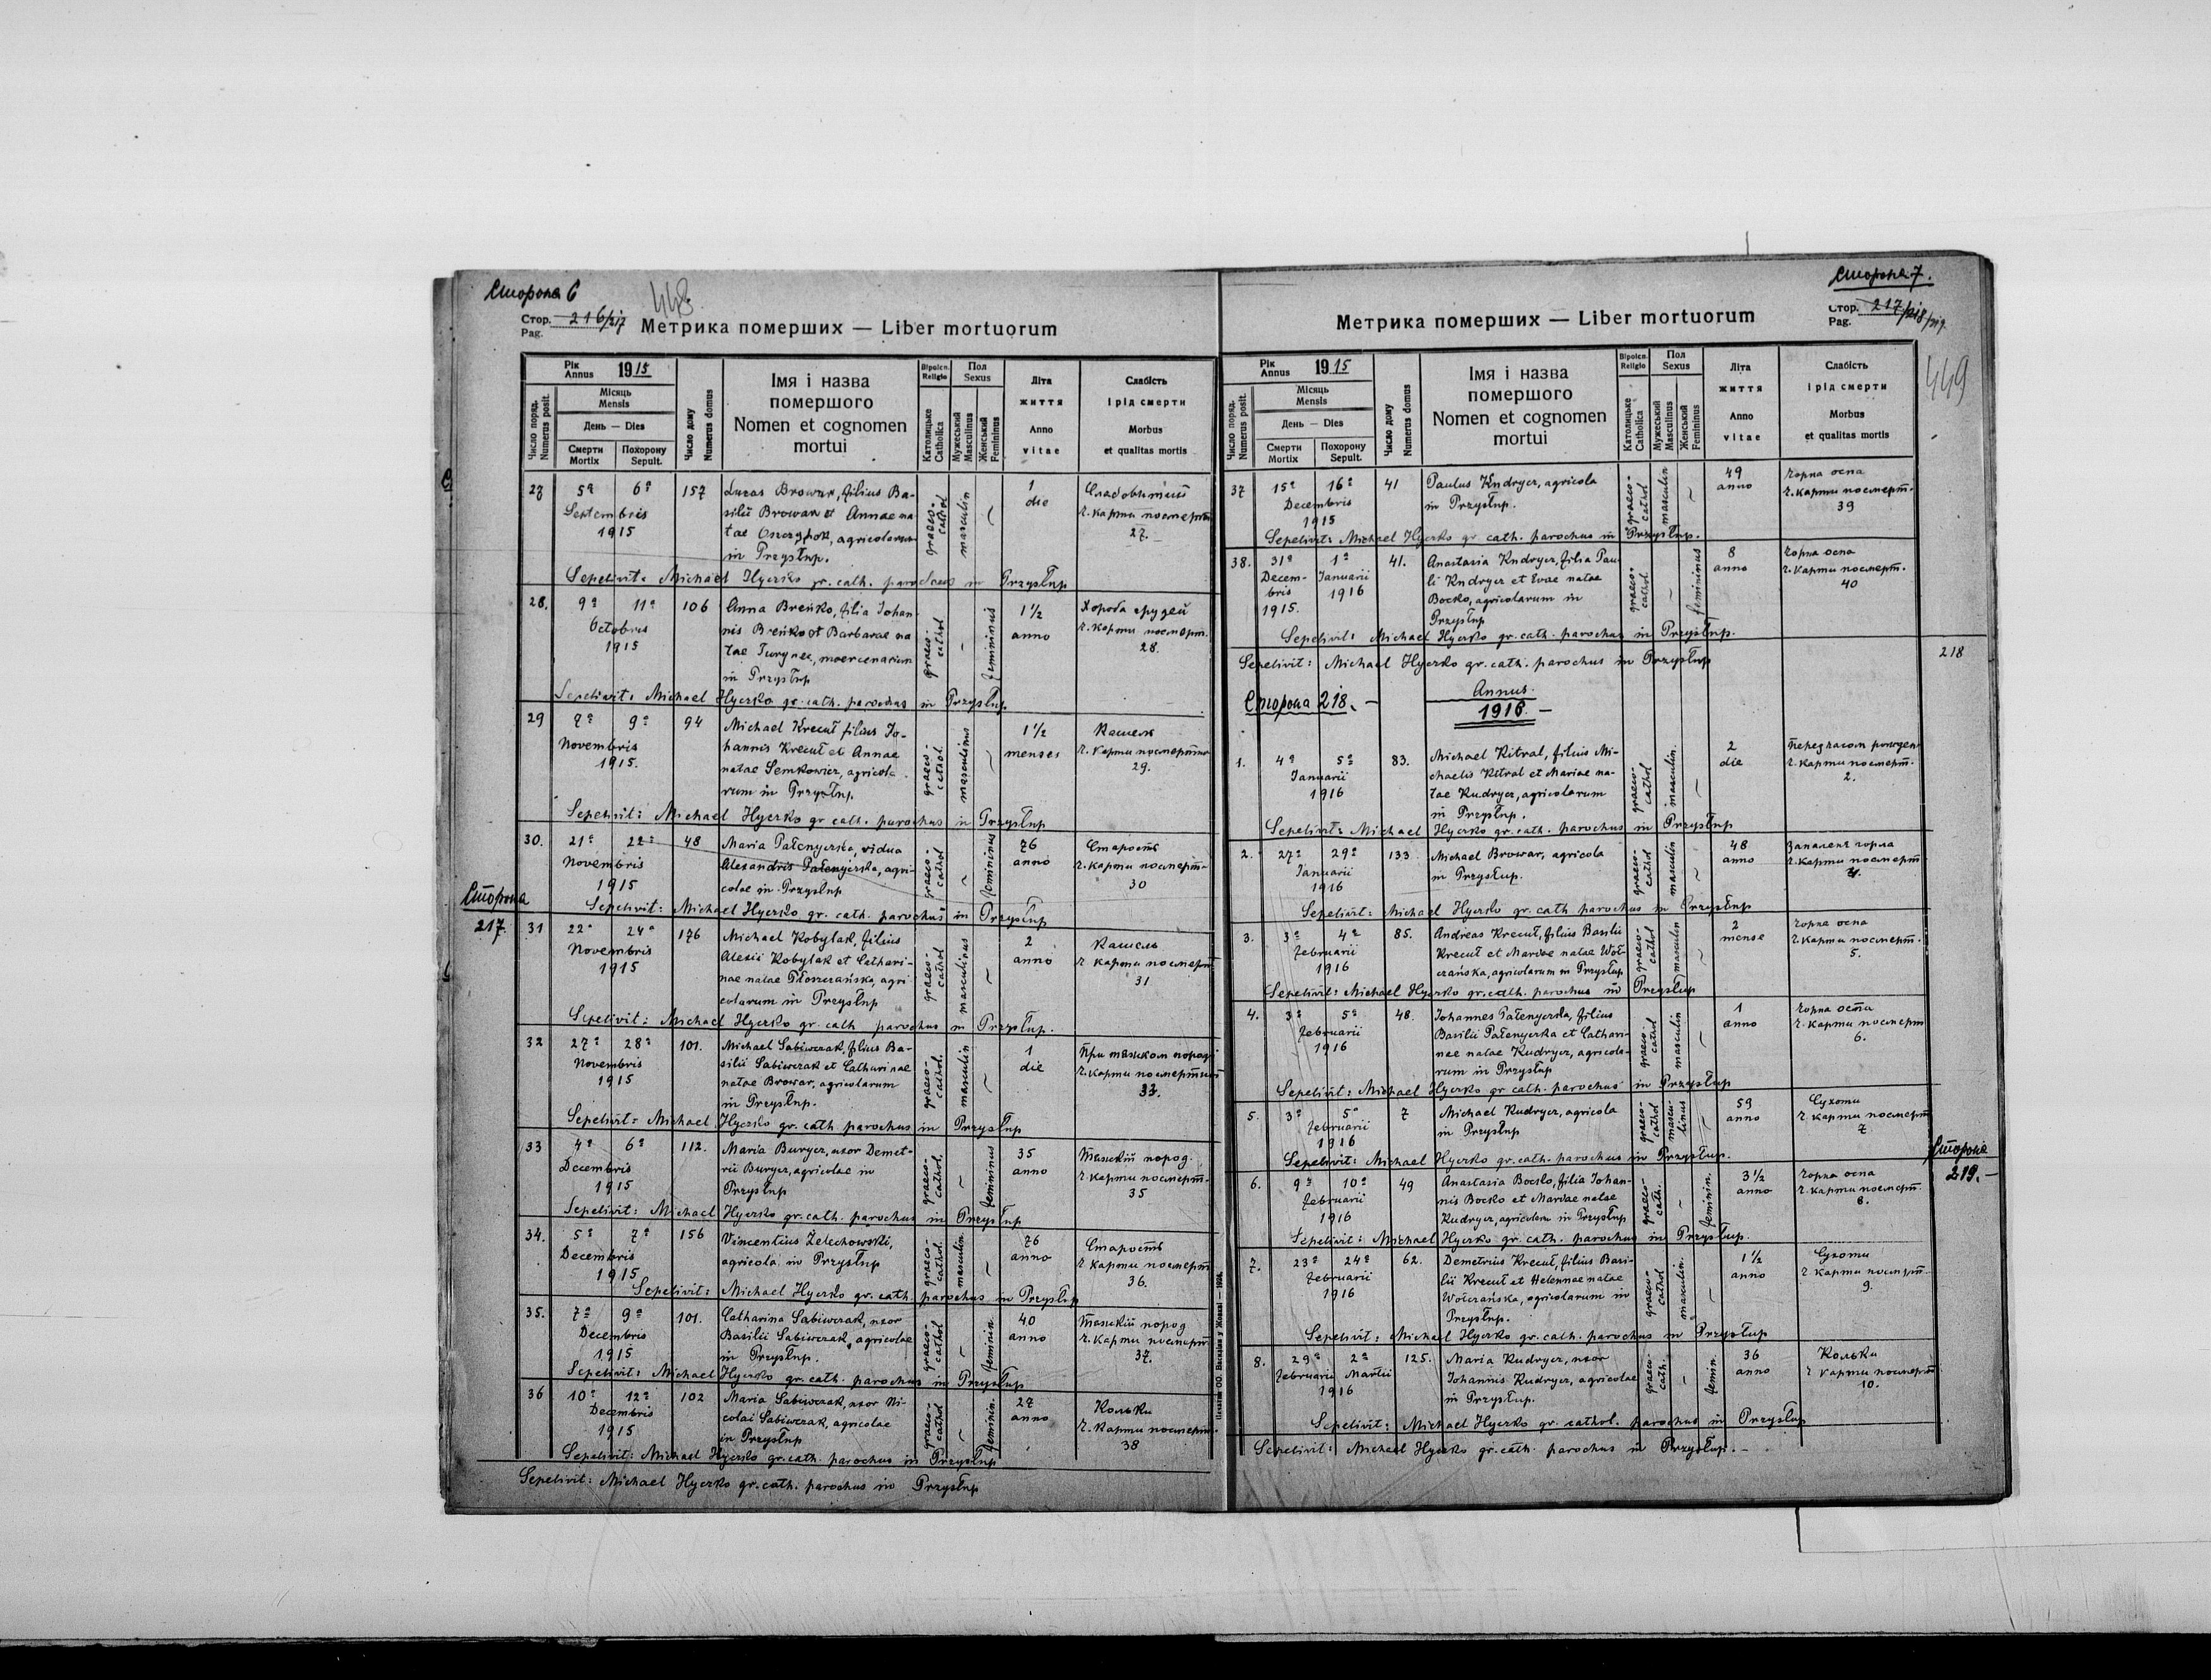 Сторона 6
448.
Стор. 216/217
Pag.
Метрика померших — Liber mortuorum
Рік
Annus 1915
Місяць
Mensis
День — Dies
Смерти
Mortix
Похорону
Sepult.
Число поряд.
Numerus posit.
Число дому
Numerus domus
Імя і назва
помершого
Nomen et cognomen
mortui
Віроісп.
Religio
Католицьке
Catholica
Пол
Sexus
Мужеський
Masculinus
Женський
Femininus
Літа
життя
Anno
vitae
Слабість
і рід смерти
Morbus
et qualitas mortis
27 5ª 6ª 157 Lucas Browar, filius Ba-
Septembris silii Browar et Annae na-
1915 tae agricolarum
in Przysłup.
graeco-cathol masculin 1 die
ч. карти посмерт
27.
Sepelivit: Michael Hyczko gr. cath. parochus in Przysłup
28. 9ª 11ª 106 Anna Breńko, filia Johan-
Octobris nis Breńko et Barbarae na
1915 tae
in Przysłup
graeco-cathol femininus 1½ anno
Хороба грудей
ч. карти посмерт.
28.
Sepelivit: Michael Hyczko gr. cath. parochus in Przysłup.
29 7ª 9ª 94 Michael Krecuł filius Jo-
Novembris hannis Krecuł et Annae
1915. natae Semkowicz, agricola-
rum in Przysłup.
graeco-cathol. masculinus 1½ menses
Кашель
ч. карти посмертно
29.
Sepelivit: Michael Hyczko gr cath. parochus in Przysłup
30. 21ª 22ª 48 Maria Pałenyczka, vidua
Novembris Alexandris Pałenyczka, agri-
1915 colae in Przysłup
graeco-cathol femininus 76 anno
Старость
ч. карти посмерт-
30
Sepelivit: Michael Hyczko gr. cath. parochus in Przysłup
Сторона
217.
31 22ª 24ª 176 Michael Kobylak, filius
Novembris Alexii Kobylak et Cathari-
1915 nae natae Płoszczańska, agri
colarum in Przysłup
graeco-cathol masculinus 2 anno
Кашель
ч карти посмерт
31
Sepelivit: Michael Hyczko gr. cath parochus in Przysłup.
32 27ª 28ª 101. Michael Sabiwczak, filius Ba-
Novembris silii Sabiwczak et Catharinae
1915 natae Browar, agricolarum
in Przysłup.
graeco-cathol. masculin 1 die
При тяжком пород
ч. карти посмертної
33.
Sepelivit: Michael Hyczko gr. cath parochus in Przysłup
33 4ª 6ª 112. Maria Burycz, uxor Demet-
Decembris rii Burycz, agricolae in
1915 Przysłup
graeco-cathol. femininus 35 anno
Тяжкій пород.
ч. карти посмерт-
35
Sepelivit: Michael Hyczko gr. cath. parochus in Przysłup
34. 5ª 7ª 156 Vincentius Żelechowski,
Decembris agricola in Przysłup
1915
graeco-cathol. masculin. 76 anno
Старость
ч карти посмерт
36.
Sepelivit: Michael Hyczko gr. cath. parochus in Przysłup
35. 7ª 9ª 101. Catharina Sabiwczak, uxor
Decembris Basilii Sabiwczak, agricolae
1915 in Przysłup.
graeco-cathol feminin. 40 anno
Тяжкій пород
ч. карти посмерт
37.
Sepelivit: Michael Hyczko gr. cath. parochus in Przysłup
36 10ª 12ª 102 Maria Sabiwczak, uxor Ni-
Decembris colai Sabiwczak, agricolae
1915 in Przysłup
graeco-cathol feminin. 27 anno
Кольки
ч. карти посмерт.
38
Sepelivit: Michael Hyczko gr. cath. parochus in Przysłup
Sepelivit: Michael Hyczko gr. cath. parochus in Przysłup
Сторона 7.
Стор. 217/218/219.
Pag.
449
Метрика померших — Liber mortuorum
Рік
Annus 1915
Місяць
Mensis
День — Dies
Смерти
Mortix
Похорону
Sepult.
Число поряд.
Numerus posit.
Число дому
Numerus domus
Імя і назва
помершого
Nomen et cognomen
mortui
Віроісп.
Religio
Католицьке
Catholica
Пол
Sexus
Мужеський
Masculinus
Женський
Femininus
Літа
життя
Anno
vitae
Слабість
і рід смерти
Morbus
et qualitas mortis
37 15ª 16ª 41 Paulus Kndrycz, agricola
Decembris in Przysłup.
1915
graeco-cathol masculin 49 anno
Чорна оспа
ч. карти посмерт-
39
Sepelivit: Michael Hyczko gr cath. parochus in Przysłup.
38. 31ª 1ª 41. Anastasia Kndrycz, filia Pau
Decem- Januarii li Kndrycz et Evae natae
bris 1916 Bocko, agricolarum in
1915. Przysłup
graeco-cathol. femininus 8 anno
Чорна оспа
ч. карти посмерт.
40
Sepelivit: Michael Hyczko gr. cath. parochus in Przysłup.
Sepelivit: Michael Hyczko gr. cath. parochus in Przysłup
218
Сторона 218. -
Annus
1916. -
1. 4ª 5ª 83. Michael Kitral, filius Mi-
Januarii chaelis Kitral et Mariae na-
1916 tae Kudrycz, agricolarum
in Przysłup.
graeco-cathol masculin. 2 die
ч. карти посмерт.
2.
Sepelivit: Michael Hyczko gr. cath. parochus in Przysłup
2. 27ª 29ª 133 Michael Browar, agricola
Januarii in Przysłup.
1916
graeco-cathol masculin 48 anno
Запаленє горла
ч. карти посмерт
4.
Sepelivit: Michael Hyczko gr. cath parochus in Przysłup
3. 3ª 4ª 85. Andreas Krecuł, filius Basilii
Februarii Krecuł et Mariae natae Woł-
1916 czańska, agricolarum in Przysłup
graeco-cathol masculin 2 mense
Чорна оспа
ч. карти посмерт.
5.
Sepelivit: Michael Hyczko gr. cath. parochus in Przysłup
4. 3ª 5ª 48. Johannes Pałenyczka, filius
Februarii Basilii Pałenyczka et Cathari-
1916 nae natae Kudrycz, agricola-
rum in Przysłup
graeco-cathol masculin 1 anno
Чорна оспа
ч. карти посмерт
6.
Sepelivit: Michael Hyczko gr cath. parochus in Przysłup
5. 3ª 5ª 7 Michael Kudrycz, agricola
Februarii in Przysłup
1916
graeco-cathol mascu-linus 59 anno
Сухоти
ч карти посмерт
7
Sepelivit: Michael Hyczko gr. cath. parochus in Przysłup.
Сторона
219. -
6. 9ª 10ª 49 Anastasia Bocko, filia Johan-
Februarii nis Bocko et Mariae natae
1916 Kudrycz, agricolum in Przysłup
graeco-cath. feminin. 3½ anno
Чорна оспа
ч. карти посмерт.
8.
Sepelivit: Michael Hyczko gr. cath. parochus in Przysłup.
7. 23ª 24ª 62. Demetrius Krecuł, filius Basi-
Februarii lii Krecuł et Helennae natae
1916 Wołczańska, agricolarum in
Przysłup.
graeco-cathol masculin. 1½ anno
Сухоти
ч карти посмерт-
9.
Sepelivit: Michael Hyczko gr. cath. parochus in Przysłup
8. 29ª 2ª 125. Maria Kudrycz, uxor
Februarii Martii Johannis Kudrycz, agricolae
1916 in Przysłup.
graeco-cath. femin. 36 anno
Кольки
ч карти посмерт
10.
Sepelivit: Michael Hyczko gr. cathol. parochus in Przysłup
Sepelivit: Michael Hyczko gr. cath. parochus in Przysłup. -